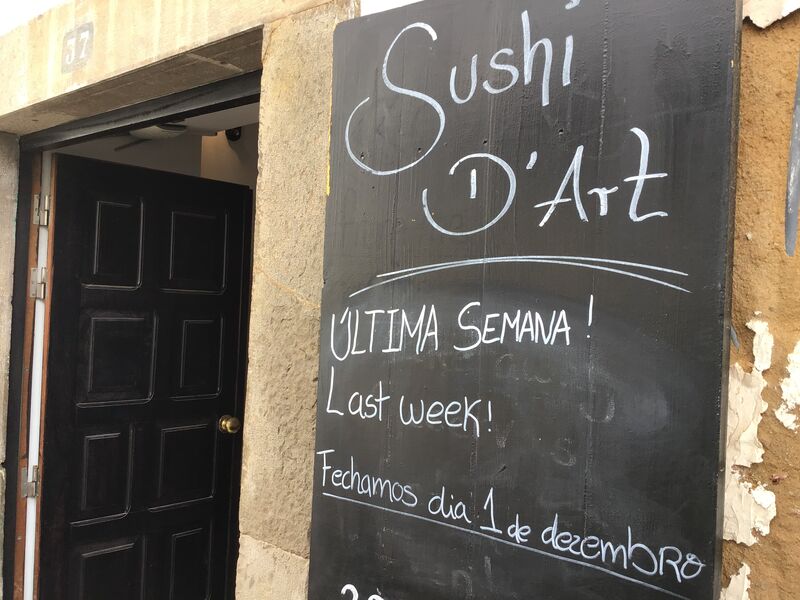 37
Sushi
D'Art
ÚLTIMA SEMANA!
Last week!
Fechamos dia 1 de dezembro